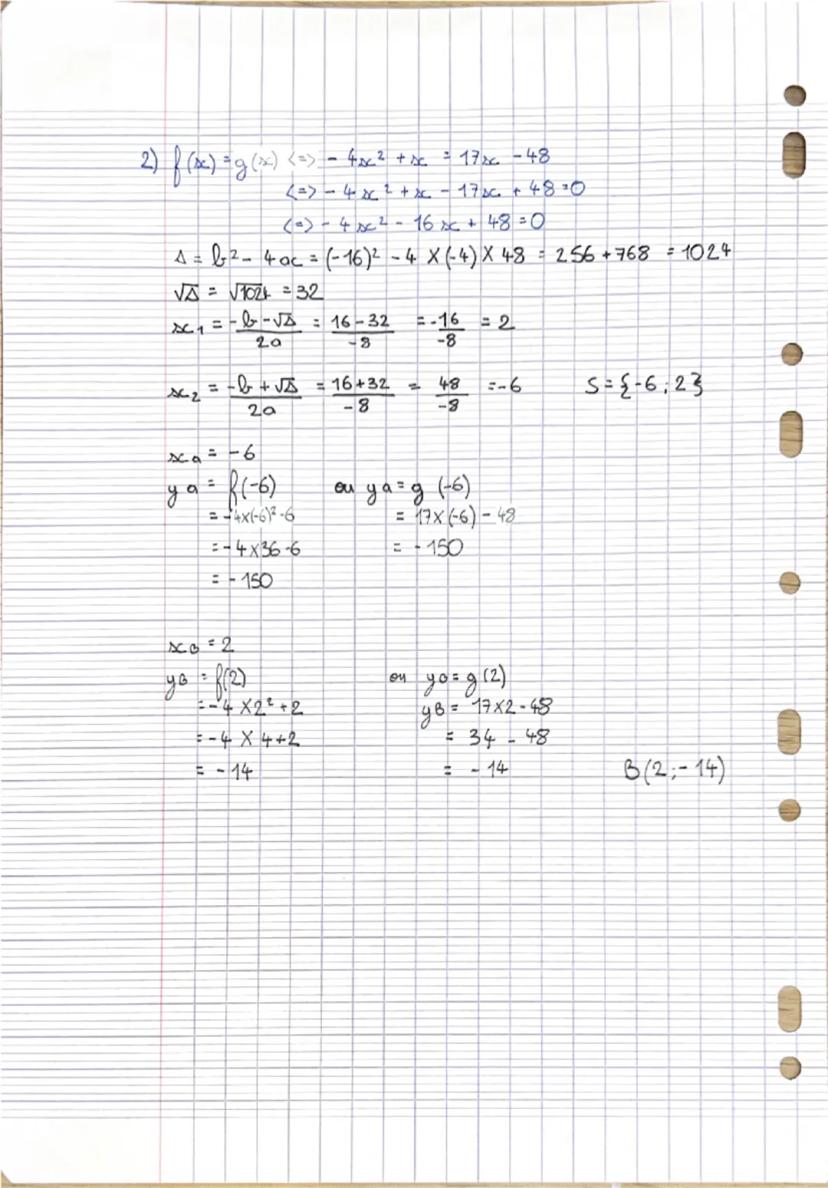 2) f(x) = g(x) <=> - 4x² + x = 17x - 48
<=> - 4x² + x - 17x + 48 = 0
<=> - 4x² - 16x + 48 = 0
Δ = b² - 4ac = (-16)² - 4 × (-4) × 48 = 256 + 768 = 1024
√Δ = √1024 = 32
x₁ = (-b - √Δ)/2a = (16 - 32)/-8 = -16/-8 = 2
x₂ = (-b + √Δ)/2a = (16 + 32)/-8 = 48/-8 = -6 S = {-6 ; 2}
xa = -6
ya = f(-6) ou ya = g (-6)
= -4×(-6)² - 6 = 17×(-6) - 48
= -4 × 36 - 6 = - 150
= - 150
xB = 2
yB = f(2) ou yB = g(2)
= -4 × 2² + 2 yB = 17×2 - 48
= -4 × 4 + 2 = 34 - 48
= - 14 = - 14 B(2 ; - 14)